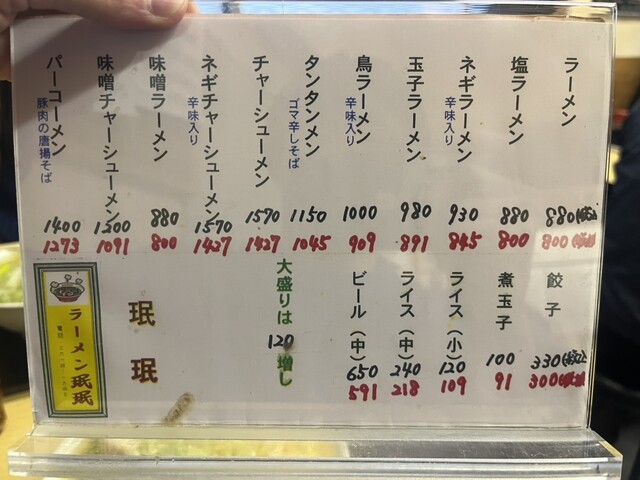 ラーメン
880(税込)
800(税抜)
塩ラーメン
880
800
ネギラーメン
辛味入り
930
845
玉子ラーメン
980
891
鳥ラーメン
辛味入り
1000
909
タンタンメン
ゴマ辛しそば
1150
1045
チャーシューメン
1570
1427
ネギチャーシューメン
辛味入り
1570
1427
味噌ラーメン
880
800
味噌チャーシューメン
1200
1091
パーコーメン
豚肉の唐揚そば
1400
1273
餃子
330(税込)
300(税抜)
煮玉子
100
91
ライス(小)
120
109
ライス(中)
240
218
ビール(中)
650
591
大盛りは
120増し
珉珉
ラーメン珉珉